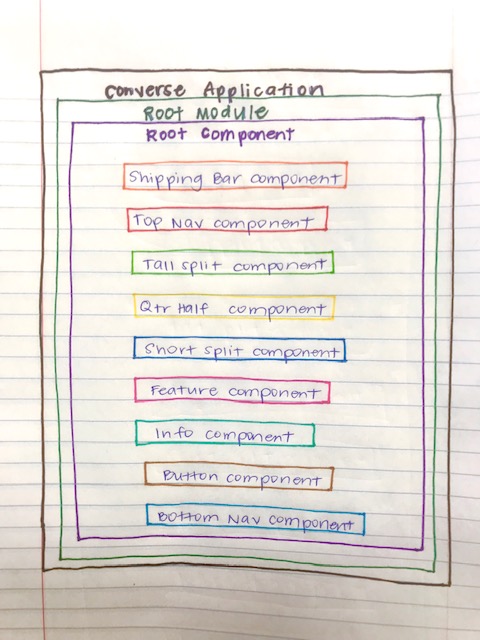 Converse Application
Root Module
Root Component
Shipping Bar component
Top Nav component
Tall split component
Qtr Half component
Short split component
Feature component
Info component
Button component
Bottom Nav component